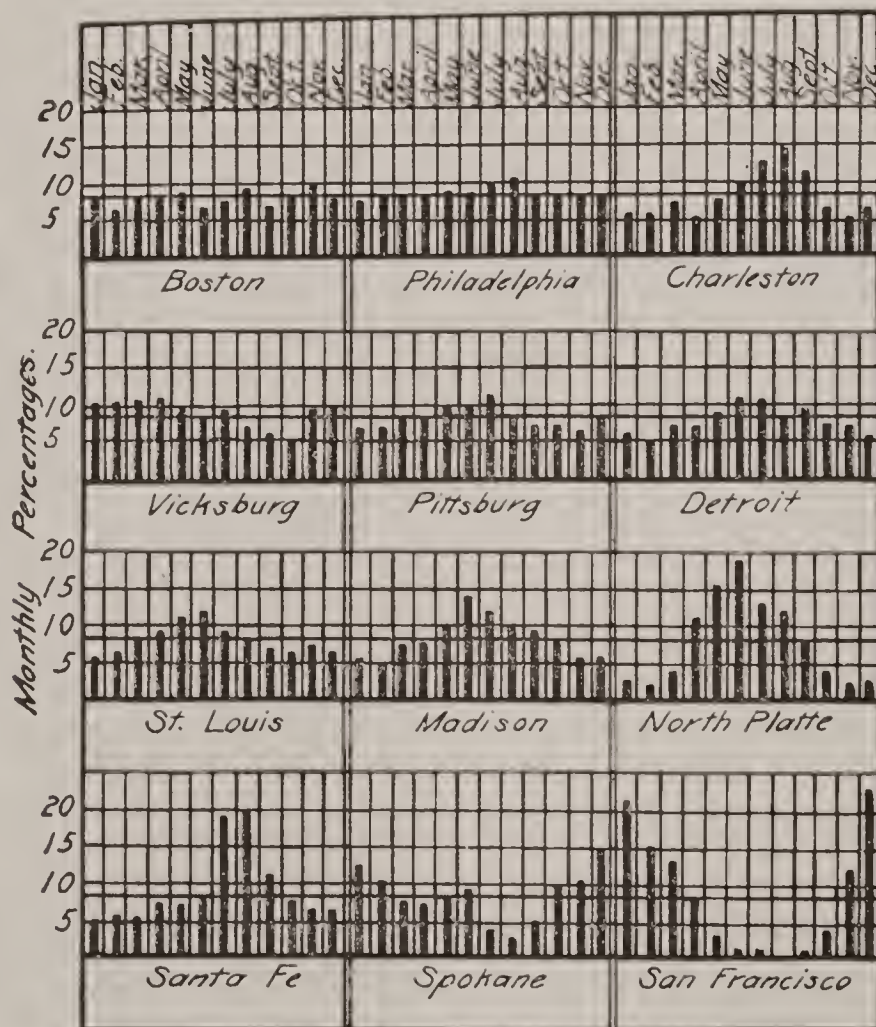 Jan. Feb. Mar. April May June July Aug. Sept. Oct. Nov. Dec. Jan. Feb. Mar. April May June July Aug. Sept. Oct. Nov. Dec. Jan. Feb. Mar. April May June July Aug. Sept. Oct. Nov. Dec.
20
15
10
5
Boston Philadelphia Charleston
Monthly Percentages.
20
15
10
5
Vicksburg Pittsburg Detroit
20
15
10
5
St. Louis Madison North Platte
20
15
10
5
Santa Fe Spokane San Francisco